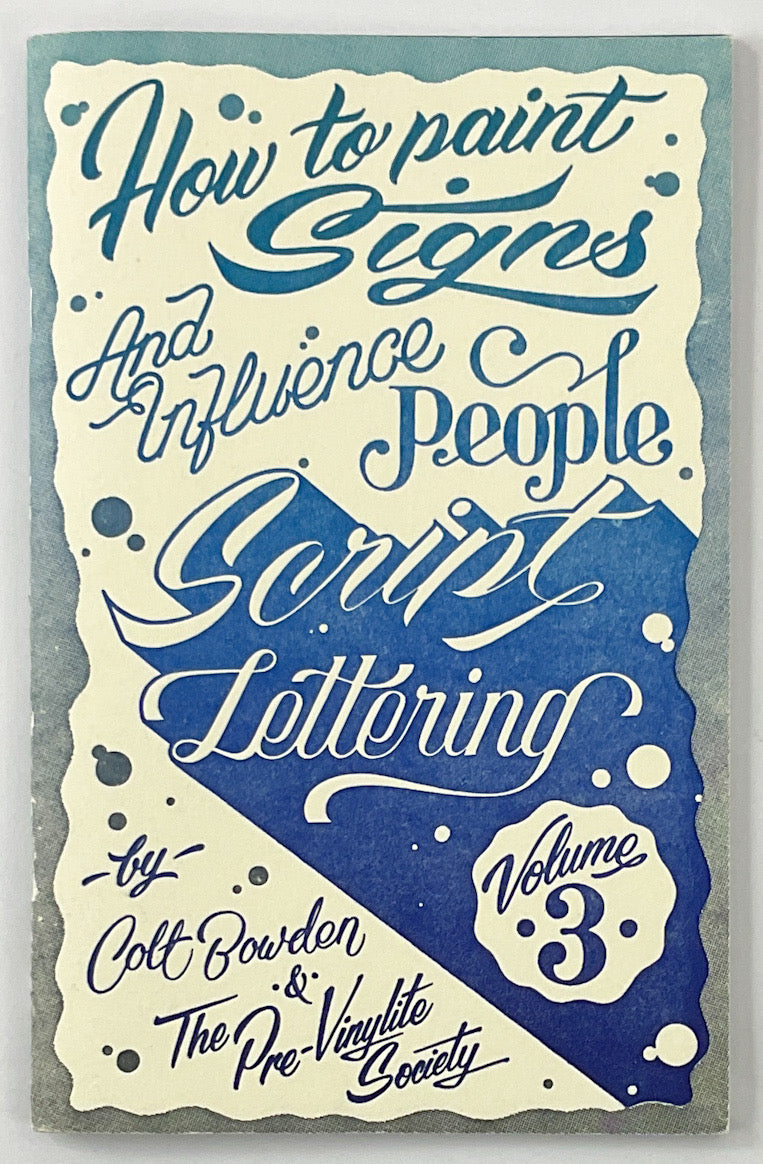 How to paint
Signs
And
Influence
People
Script
Lettering
Volume
3
-by-
Colt Bowden
&
The Pre-Vinylite
Society